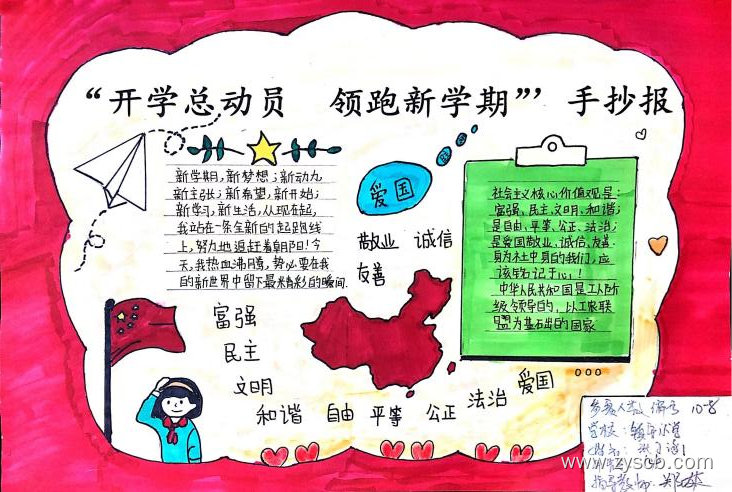 “开学总动员 领跑新学期”’手抄报
新学期,新梦想;新动力,
新主张;新希望,新开始;
新学习,新生活,从现在起,
我站在一条全新的起跑线
上,努力地追赶着朝阳!今
天,我热血沸腾,势必要在我
的新世界中留下最精彩的瞬间.
爱国
敬业 诚信
友善
社会主义核心价值观是:
富强、民主、文明、和谐;
是自由、平等、公正、法治;
是爱国敬业、诚信、友善.
身为社中員的我们,应
该铭记于心!
中华人民共和国是工人阶
级领导的,以工农联
盟为基石出的国家
富强
民主
文明
和谐 自由 平等 公正 法治 爱国
编号 10-8
学校:
指导教师:
www.zyscb.com